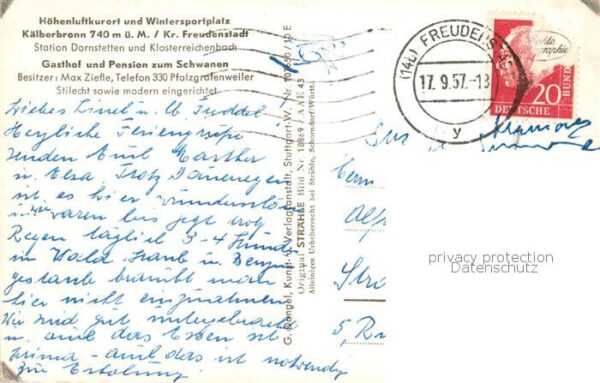 Höhenluftkurort und Wintersportplatz
Kälberbronn 740 m ü. M. / Kr. Freudenstadt
Station Dornstetten und Klosterreichenbach
Gasthof und Pension zum Schwanen
Besitzer: Max Ziefle, Telefon 330 Pfalzgrafenweiler
Stilecht sowie modern eingerichtet
Liebes Liesel u.
Herzliche Feriengrüße
senden Emil Marthel
u. Elsa. Trotz Dauerregen
ist es hier wunderschön
waren bis jetzt trotz
Regen täglich 3-4 Stunden
im Wald. Staub u. Benzin
gestank braucht man
hier nicht einzunehmen
Wir sind gut untergebracht
u. auch das Essen ist
prima - auch das ist notwendig
zur Erholung.
G. Dangel, Kunst- u. Verlagsanstalt, Stuttgart-W. Nr. 10
Original STRÄHLE Bild Nr. 18869 / AAE 43
Alleiniges Urheberrecht bei Strähle, Schorndorf/Württ.
(14b) FREUDENS
17. 9. 57.-18
y
20
DEUTSCHE BUND
Herrn
5,
privacy protection
Datenschutz